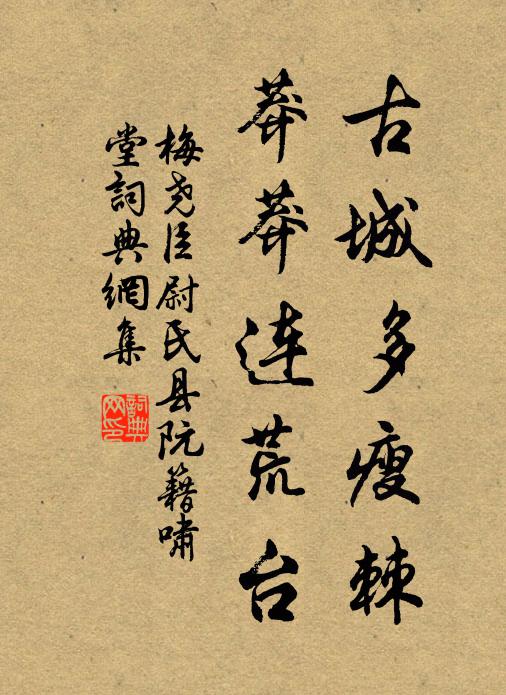 古城多瘦棘
莽莽连荒台
梅尧臣尉氏县阮籍啸
堂詞典網集
詞典
网印